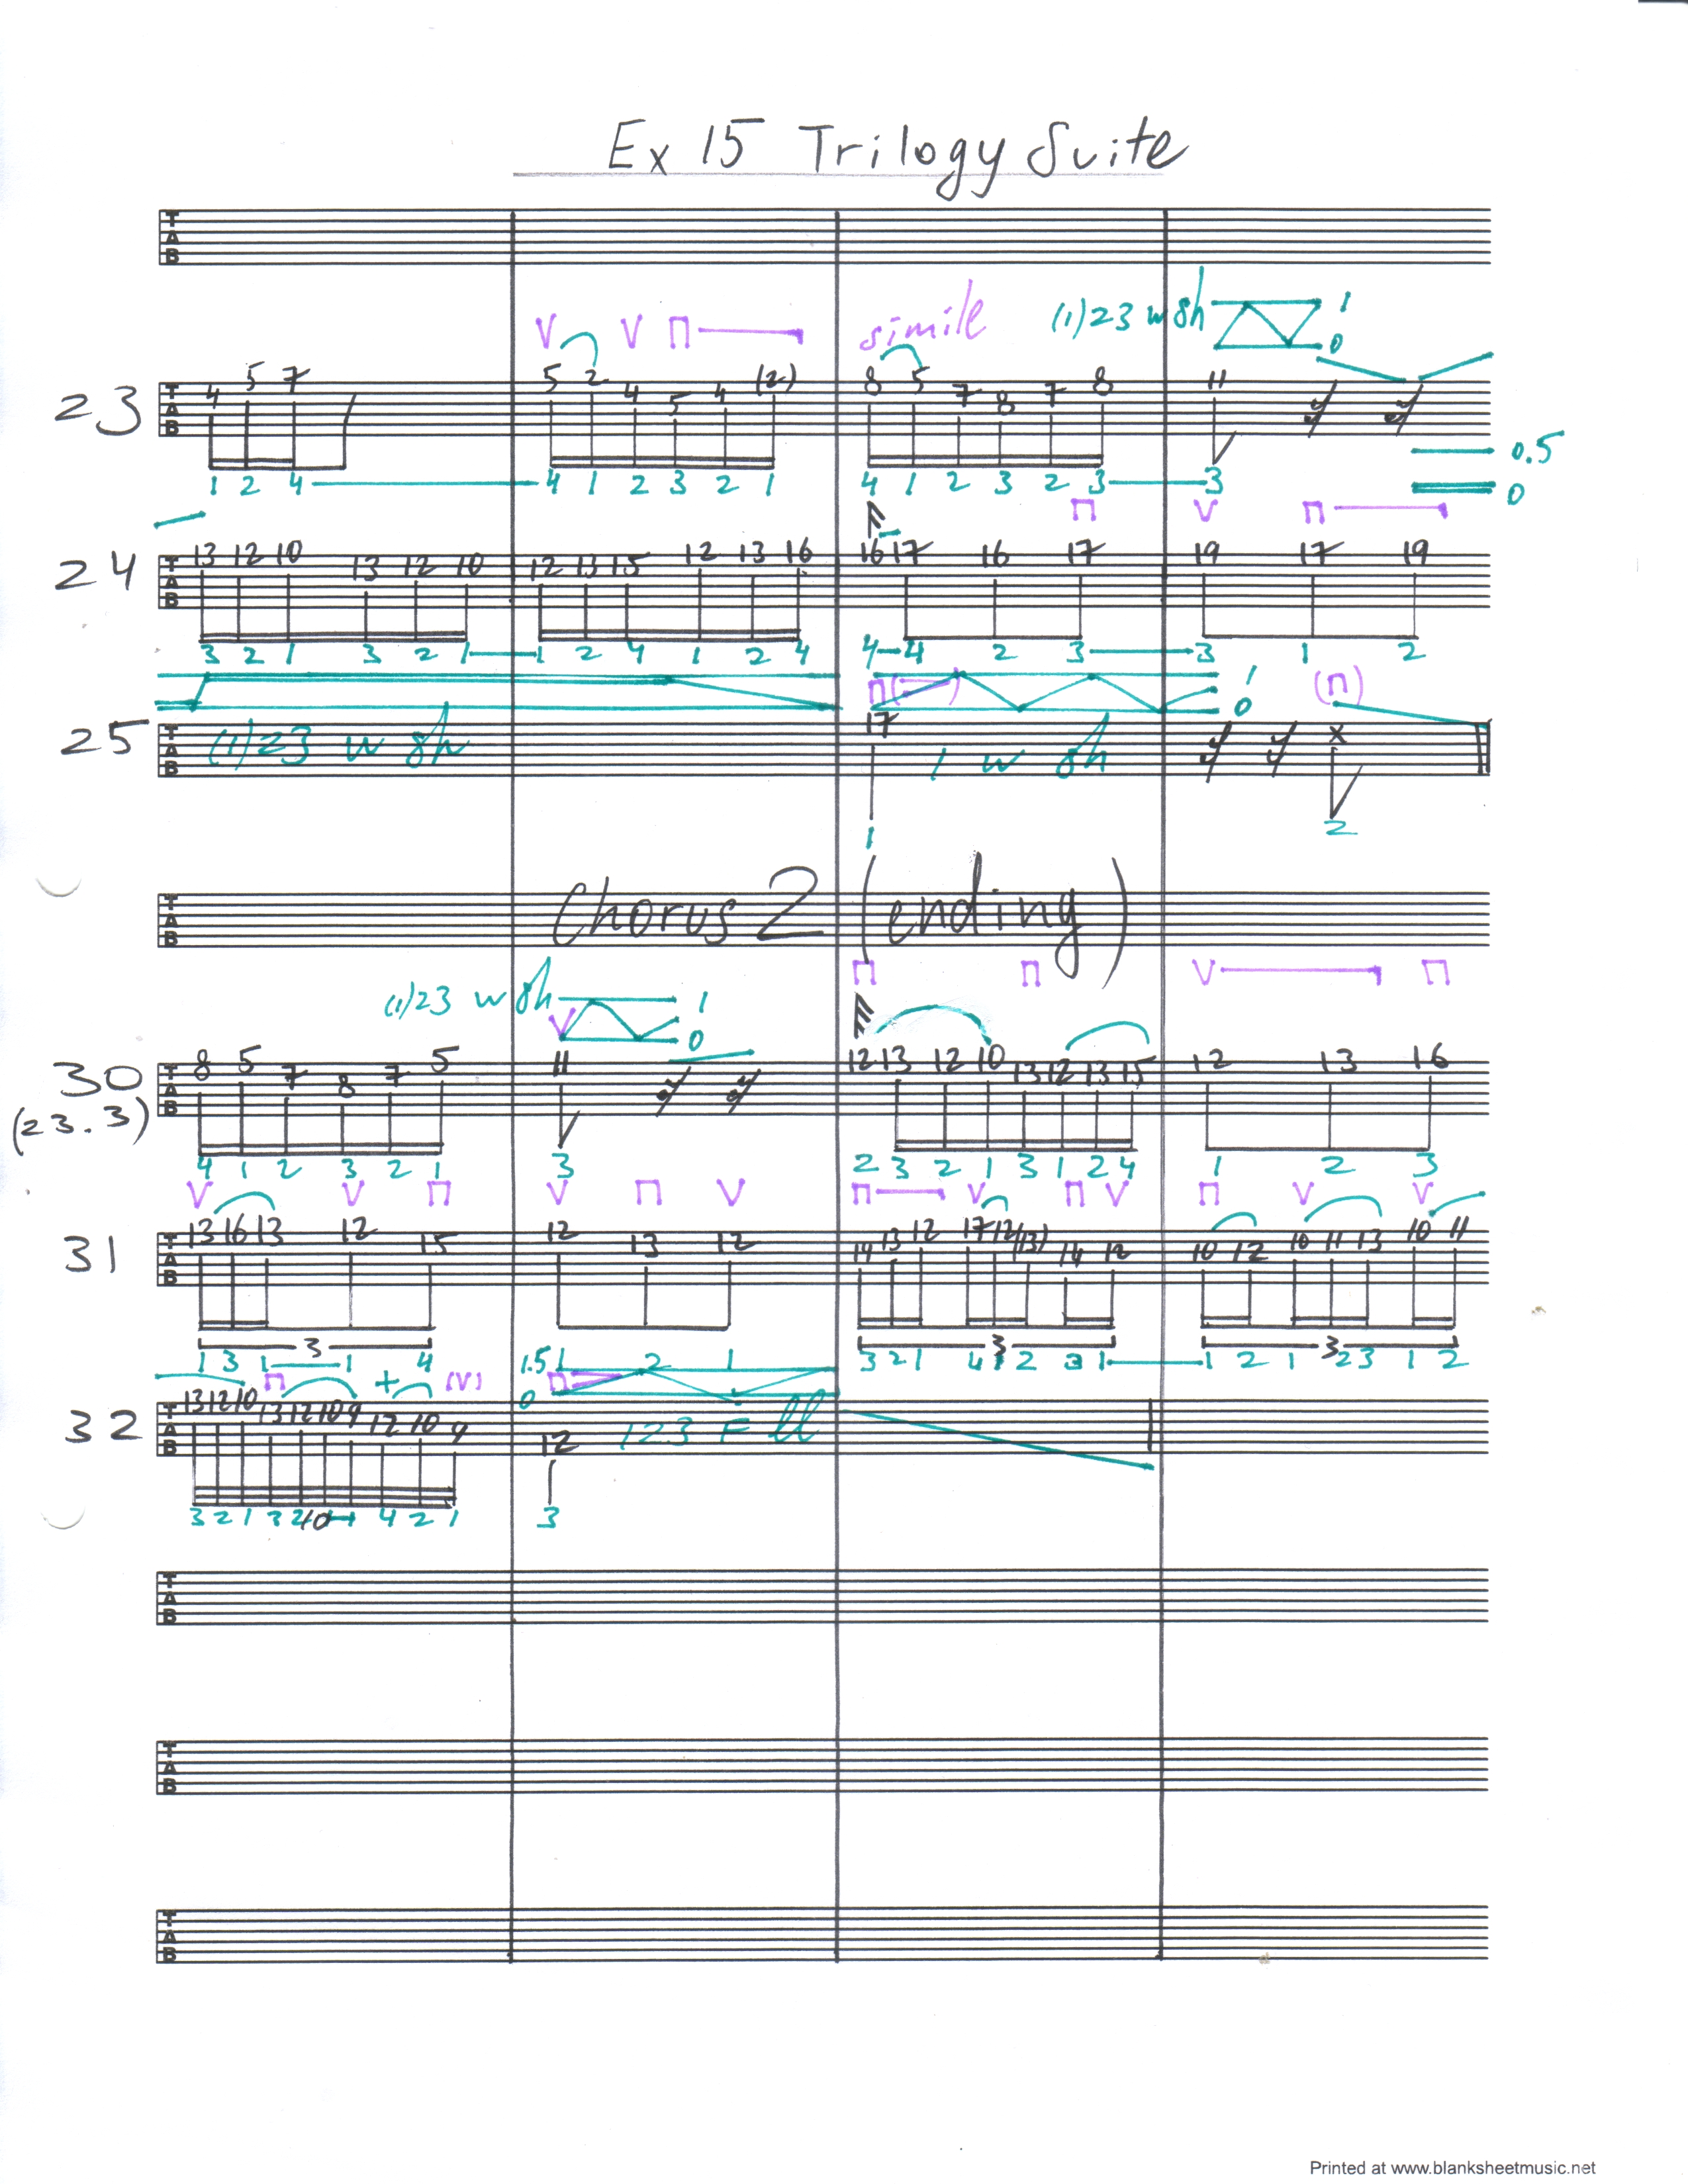 Ex 15 Trilogy Suite
T A B
V V П simile (1)23 w 8h 1
0
23 T A B 4 5 7 5 2 4 5 4 (2) 8 5 7 8 7 8 11
0.5
1 2 4 4 1 2 3 2 1 4 1 2 3 2 3 3 0
П V П
24 T A B 13 12 10 13 12 10 12 13 15 12 13 16 16 17 16 17 19 17 19
3 2 1 3 2 1 1 2 4 1 2 4 4 4 2 3 3 1 2
П( ) 1 (П)
0
25 T A B (1)23 w 8h 17 1 w 8h x
1 2
T A B Chorus 2 (ending)
П П V П
(1)23 w 8h V 1
0
30 T A B 8 5 7 8 7 5 11 12 13 12 10 13 12 13 15 12 13 16
(23.3)
4 1 2 3 2 1 3 2 3 2 1 3 1 2 4 1 2 3
V V П V П V П V П V П V V
31 T A B 13 16 13 12 15 12 13 12 14 13 12 17 12 (13) 14 12 10 12 10 11 13 10 11
3 3 3
1 3 1 1 4 1.5 1 2 1 3 2 1 4 1 2 3 1 1 2 1 2 3 1 2
П + (V) 0 П
32 T A B 13 12 10 13 12 10 9 12 10 9 12 123 F ll
3 2 1 3 2 1 4 2 1 3
T A B
T A B
T A B
Printed at www.blanksheetmusic.net